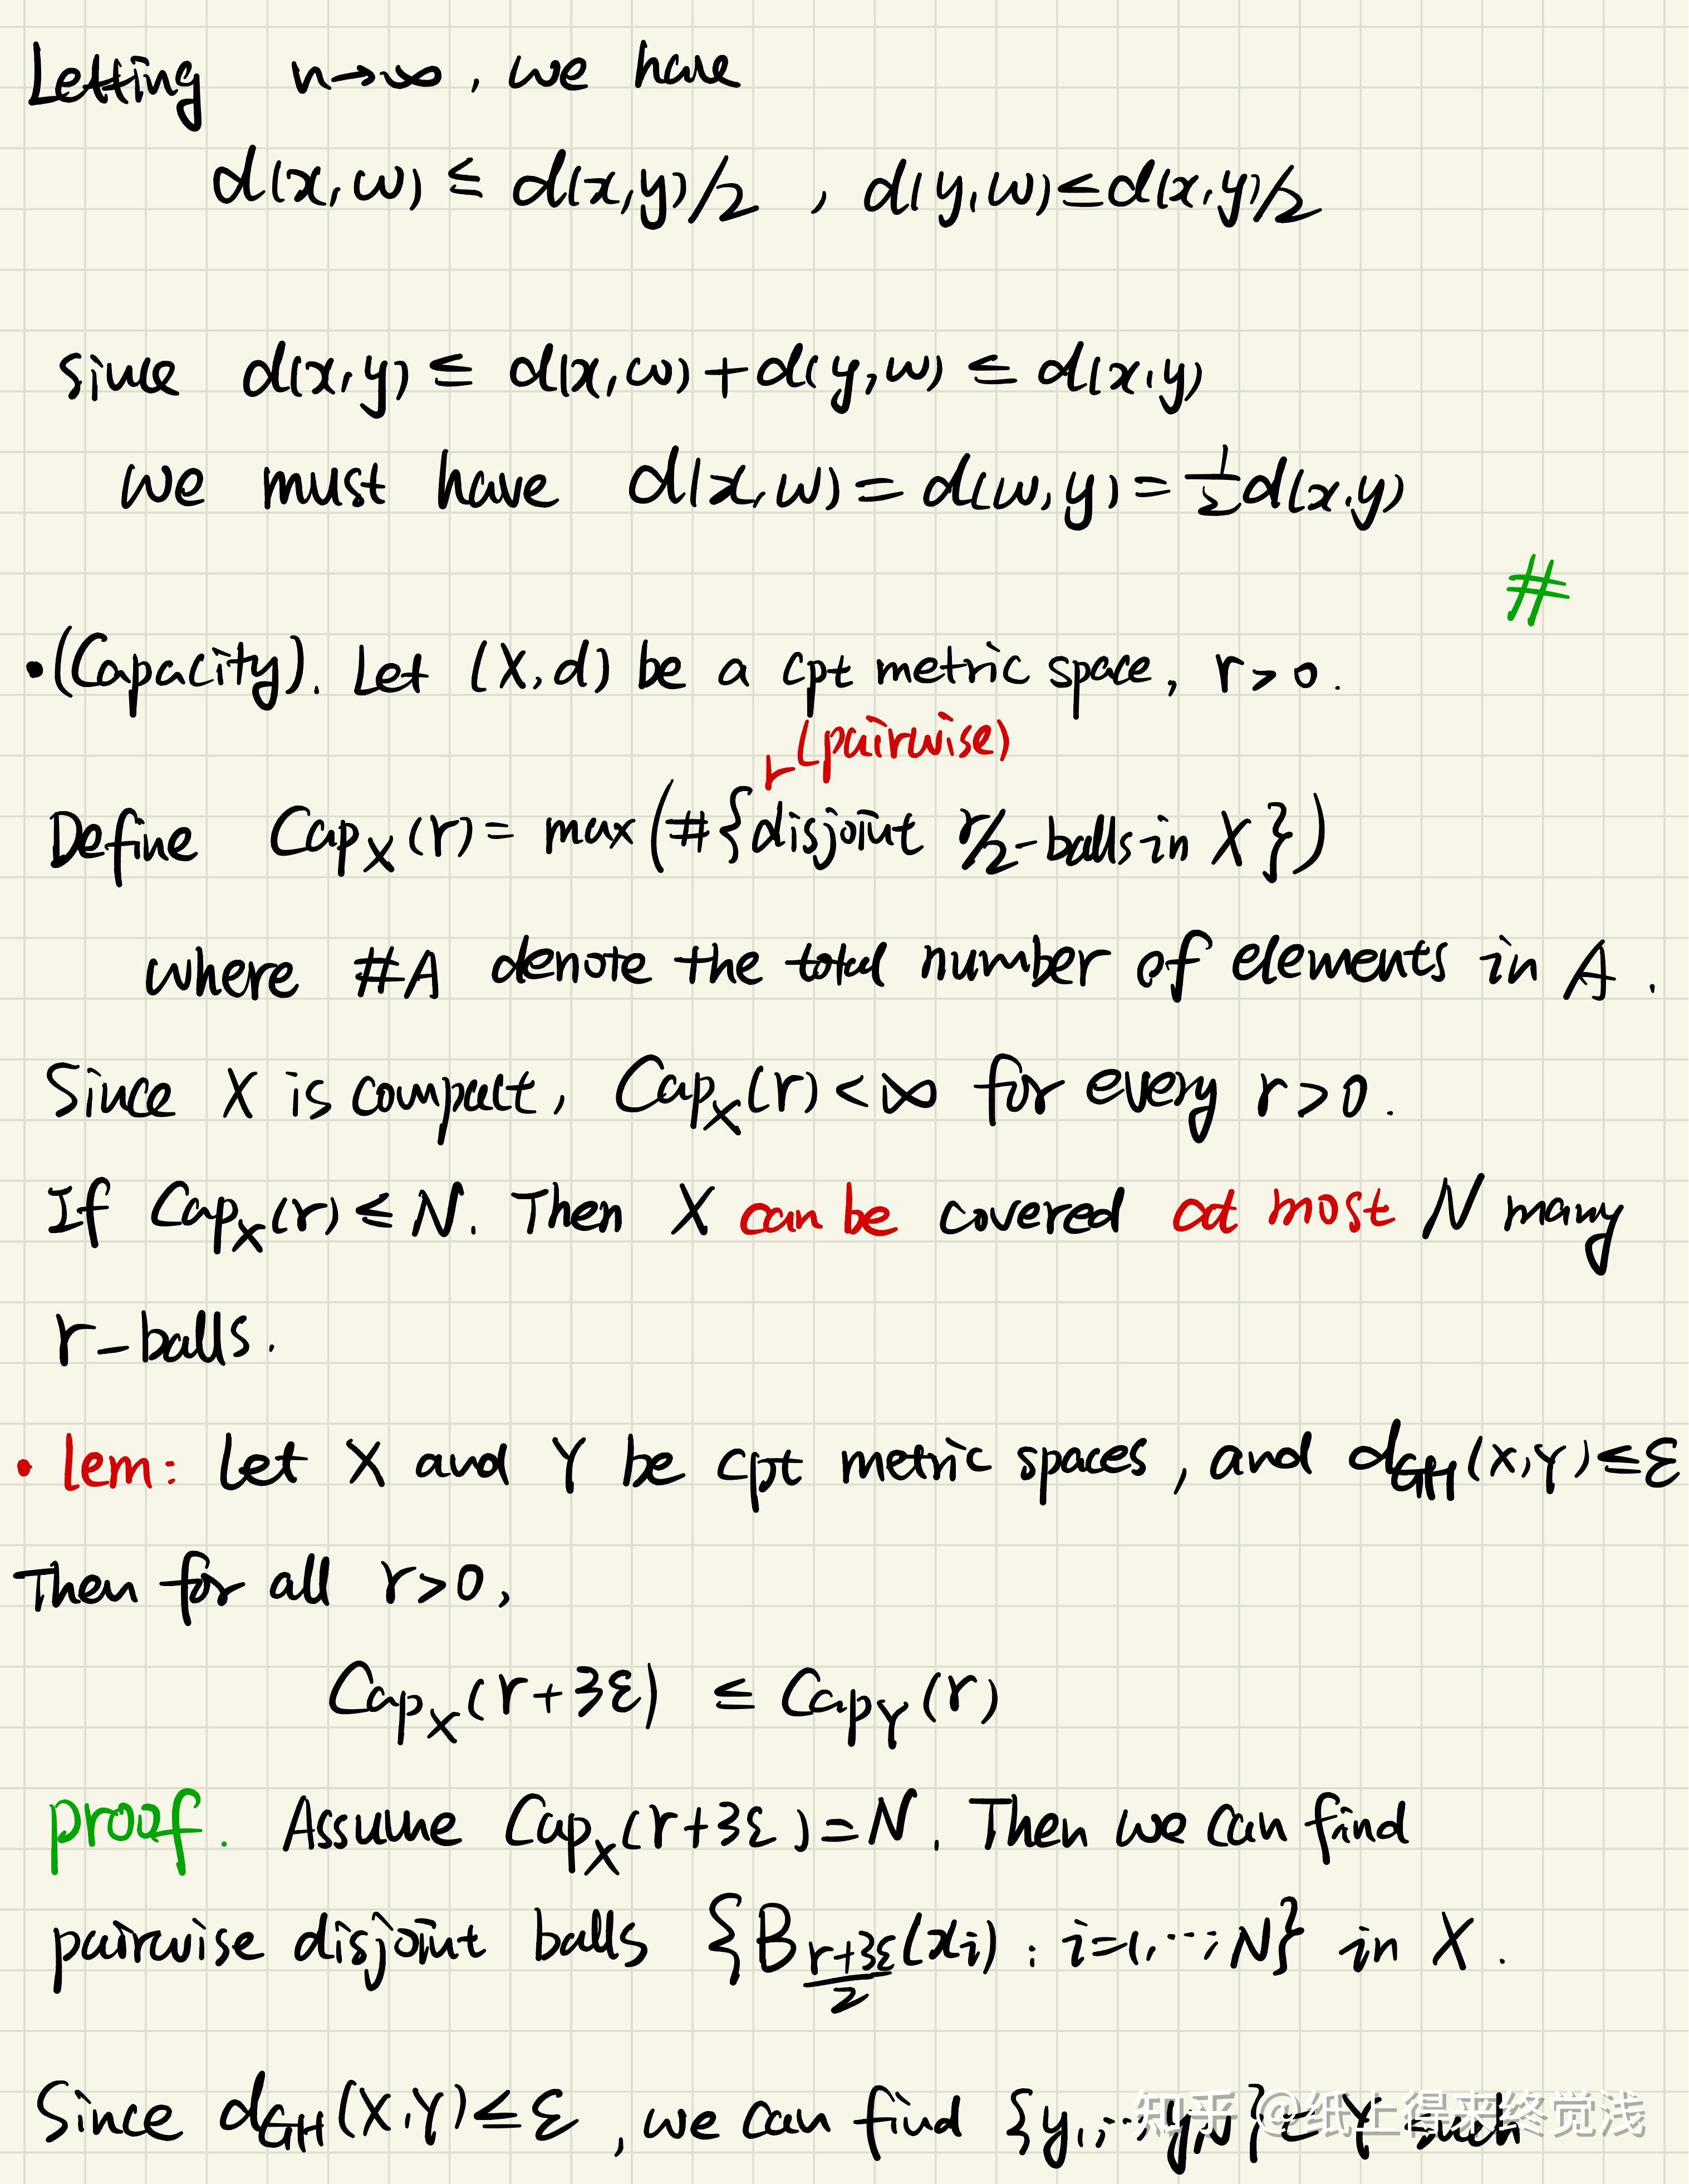 Letting n→∞, we have
d(x,w) ≤ d(x,y)/2 , d(y,w)≤d(x,y)/2
since d(x,y) ≤ d(x,w)+d(y,w) ≤ d(x,y)
we must have d(x,w)=d(w,y)=½d(x,y)
#
•(Capacity). Let (X,d) be a cpt metric space, r>0.
(pairwise)
Define Cap_X(r)= max(#{disjoint r/2-balls in X})
where #A denote the total number of elements in A.
Since X is compact, Cap_X(r)<∞ for every r>0.
If Cap_X(r)≤N. Then X can be covered at most N many
r-balls.
• lem: Let X and Y be cpt metric spaces, and d_GH(X,Y)≤ε
Then for all r>0,
Cap_X(r+3ε) ≤ Cap_Y(r)
proof. Assume Cap_X(r+3ε)=N. Then we can find
pairwise disjoint balls {B_{(r+3ε)/2}(x_i) : i=1,⋯,N} in X.
Since d_GH(X,Y)≤ε, we can find {y₁,⋯y_N}⊂Y such
知乎 @纸上得来终觉浅